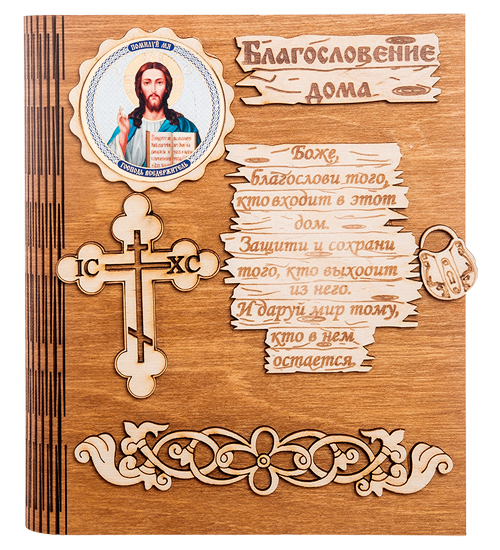 ПОМИЛУЙ МЯ
ГОСПОДЬ ВСЕДЕРЖИТЕЛЬ
Благословение
дома
IC XC
Боже,
благослови того,
кто входит в этот
дом.
Защити и сохрани
того, кто выходит
из него.
И даруй мир тому,
кто в нем
остается.